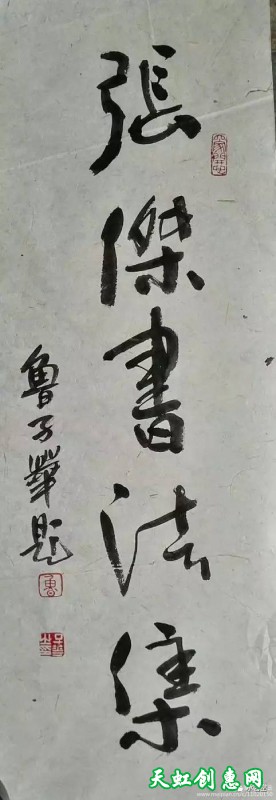 張傑書法集
魯子華題
魯
天虹创惠网